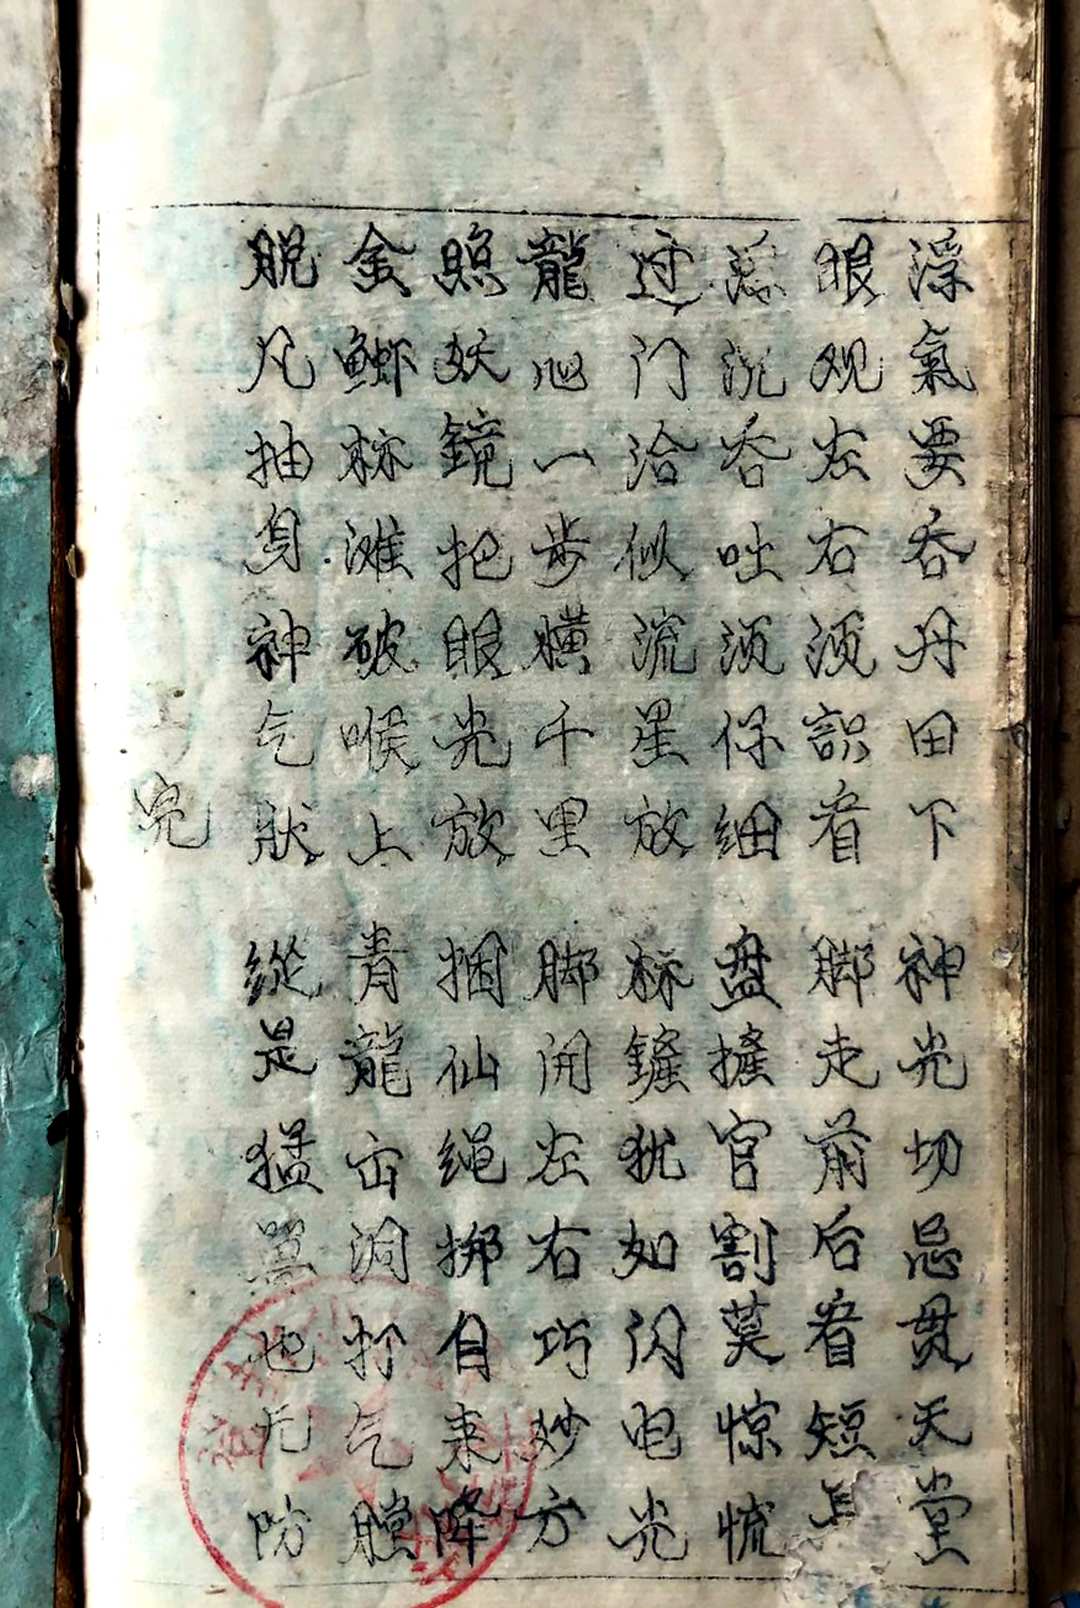 浮氣要吞丹田下 神光切忌贯天堂
眼观左右须識看 脚走前后看短長
沉吞吐须保细 盘攉官割莫惊慌
过门洽似流星放 标鑵犹如闪电光
龍心一步横千里 脚开左右巧妙方
照妖鏡把眼光放 捆仙绳挪自来降
金鲫标滩破喉上 青龍出洞打气膛
脱凡抽身神气狀 縱是猛兽也无防
完